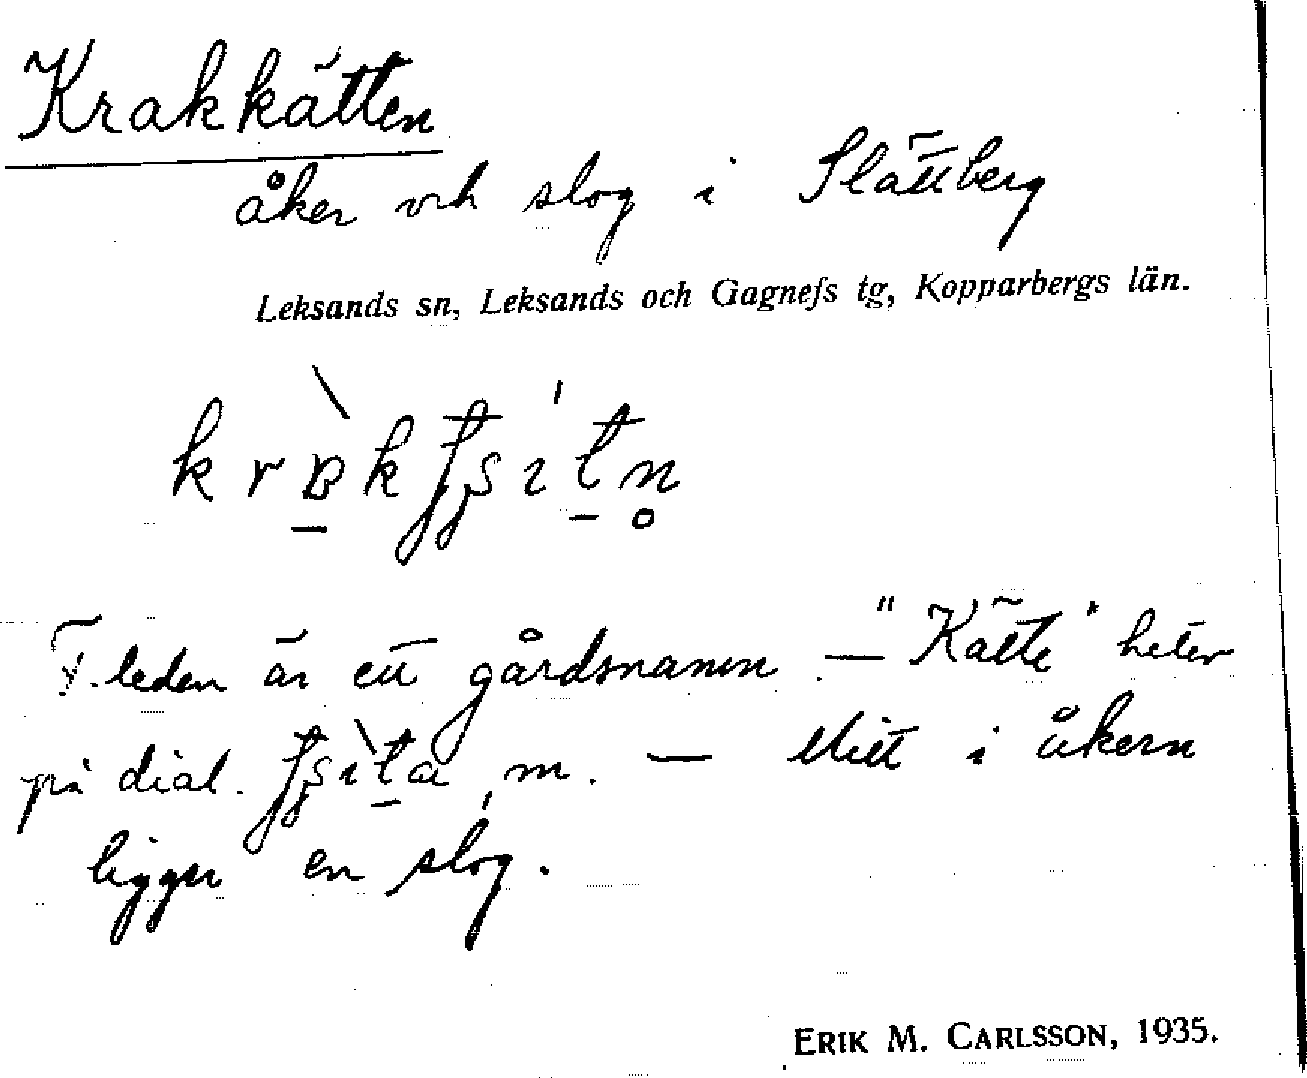 Krakkätten
åker och slog i Slättberg
Leksands sn, Leksands och Gagnefs tg, Kopparbergs län.
F. leden är ett gårdsnamn. — "Kätte" heter
på dial. m. — Mitt i åkern
ligger en slog.
ERIK M. CARLSSON, 1935.